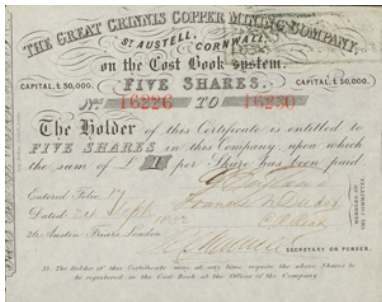 THE GREAT CRINNIS COPPER MINING COMPANY,
ST AUSTELL, CORNWALL,
on the Cost Book system.
CAPITAL, £50,000. FIVE SHARES. CAPITAL, £50,000.
Nos 16226 TO 16230
The Holder of this Certificate is entitled to
FIVE SHARES in this Company upon which
the sum of £ 1 per Share has been paid
Entered Folio 17
Dated 24 Sept
26, Austin Friars, London
MEMBERS OF THE COMMITTEE.
SECRETARY OR PURSER.
The Holder of this Certificate may at any time require the above Shares to
be registered in the Cost Book at the Offices of the Company